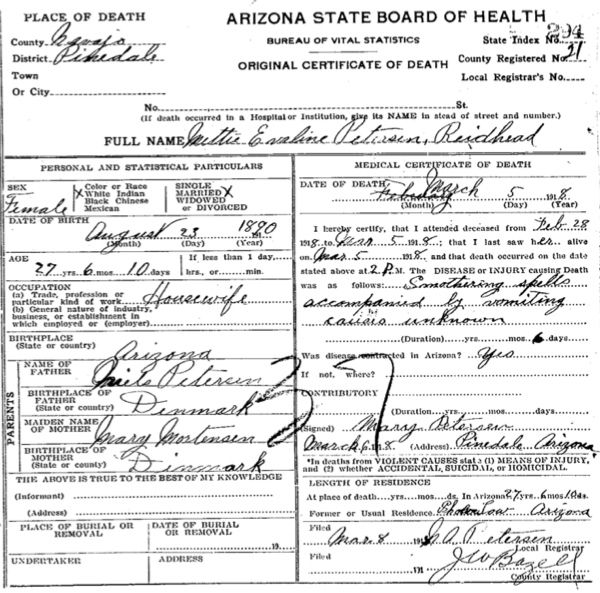 PLACE OF DEATH
County Navajo
District Pinedale
Town
Or City
ARIZONA STATE BOARD OF HEALTH
BUREAU OF VITAL STATISTICS
ORIGINAL CERTIFICATE OF DEATH
State Index No. 294
County Registered No. 21
Local Registrar's No.
No. St.
(If death occurred in a Hospital or Institution, give its NAME in stead of street and number.)
FULL NAME Mettie Evaline Petersen, Reidhead
PERSONAL AND STATISTICAL PARTICULARS
SEX
Female
Color or Race
X White Indian
Black Chinese
Mexican
SINGLE
MARRIED X
WIDOWED
or DIVORCED
DATE OF BIRTH
August 23 1890
(Month) (Day) (Year)
AGE
27 yrs. 6 mos. 10 days
If less than 1 day
hrs., or min.
OCCUPATION
(a) Trade, profession or
particular kind of work Housewife
(b) General nature of industry,
business, or establishment in
which employed or (employer)
BIRTHPLACE
(State or country) Arizona
PARENTS
NAME OF
FATHER Niels Petersen
BIRTHPLACE OF
FATHER
(State or country) Dinmark
MAIDEN NAME
OF MOTHER Mary Mortensen
BIRTHPLACE OF
MOTHER
(State or country) Dinmark
37
THE ABOVE IS TRUE TO THE BEST OF MY KNOWLEDGE
(Informant)
(Address)
PLACE OF BURIAL OR
REMOVAL
DATE OF BURIAL
OR REMOVAL
19
UNDERTAKER
ADDRESS
MEDICAL CERTIFICATE OF DEATH
DATE OF DEATH March 5 1918
(Month) (Day) (Year)
I hereby certify, that I attended deceased from Feb 28
1918 to Mar 5 1918; that I last saw her alive
on Mar 5 1918 and that death occurred on the date
stated above at 2 P.M. The DISEASE or INJURY causing Death
was as follows: Smothering spells
accompanied by vomiting
causes unknown
(Duration) yrs. mos. 6 days
Was disease contracted in Arizona? Yes
If not, where?
CONTRIBUTORY
(Duration) yrs. mos. days
(Signed) Mary Petersen
March 6, 1918 (Address) Pinedale Arizona
*In deaths from VIOLENT CAUSES state (1) MEANS OF INJURY,
and (2) whether ACCIDENTAL, SUICIDAL, or HOMICIDAL.
LENGTH OF RESIDENCE
At place of death yrs. mos. ds. In Arizona 27 yrs. 6 mos. 10 ds.
Former or Usual Residence Arizona
Filed Mar 8 1918 Petersen
Local Registrar
Filed 191 J W Bazell
County Registrar